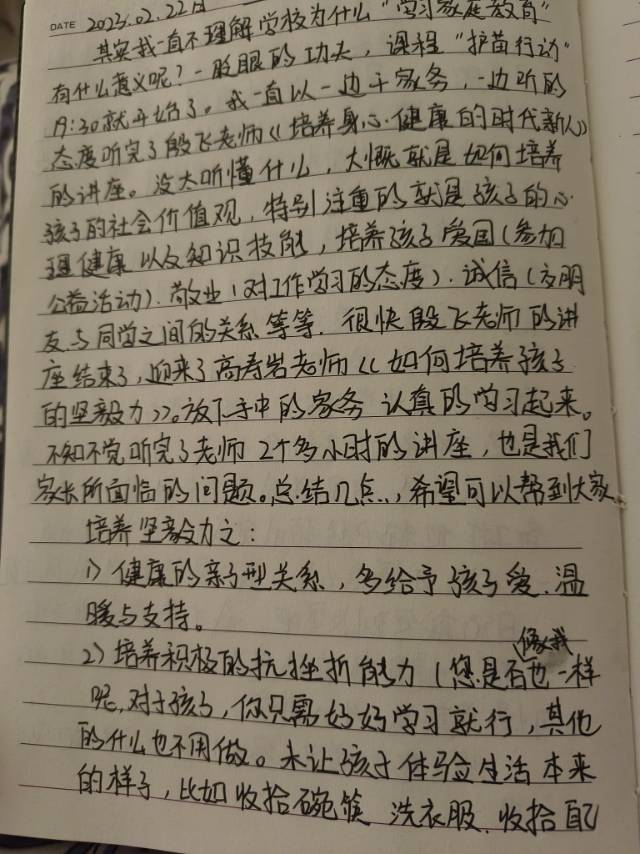 DATE 2023.02.22日
其实我一直不理解学校为什么"学习家庭教育"
有什么意义呢?一眨眼的功夫,课程"护苗行动"
19:30就开始了。我一直以一边干家务,一边听的
态度听完了殷飞老师《培养身心健康的时代新人》
的讲座。没太听懂什么,大慨就是如何培养
孩子的社会价值观,特别注重的就是孩子的心
理健康以及知识技能,培养孩子爱国(参加
公益活动).敬业(对工作学习的态度).诚信(交朋
友与同学之间的关系等等.很快殷飞老师的讲
座结束了,迎来了高寿岩老师《如何培养孩子
的坚毅力》。放下手中的家务 认真的学习起来。
不知不觉听完了老师2个多小时的讲座,也是我们
家长所面临的问题。总结几点..,希望可以帮到大家
培养坚毅力之:
1)健康的亲子型关系,多给予孩子爱.温
暖与支持。
2)培养积极的抗挫折能力(您是否也像我一样
呢,对于孩子,你只需好好学习就行,其他
的什么也不用做。未让孩子体验生活本来
的样子,比如收拾碗筷 洗衣服.收拾自己